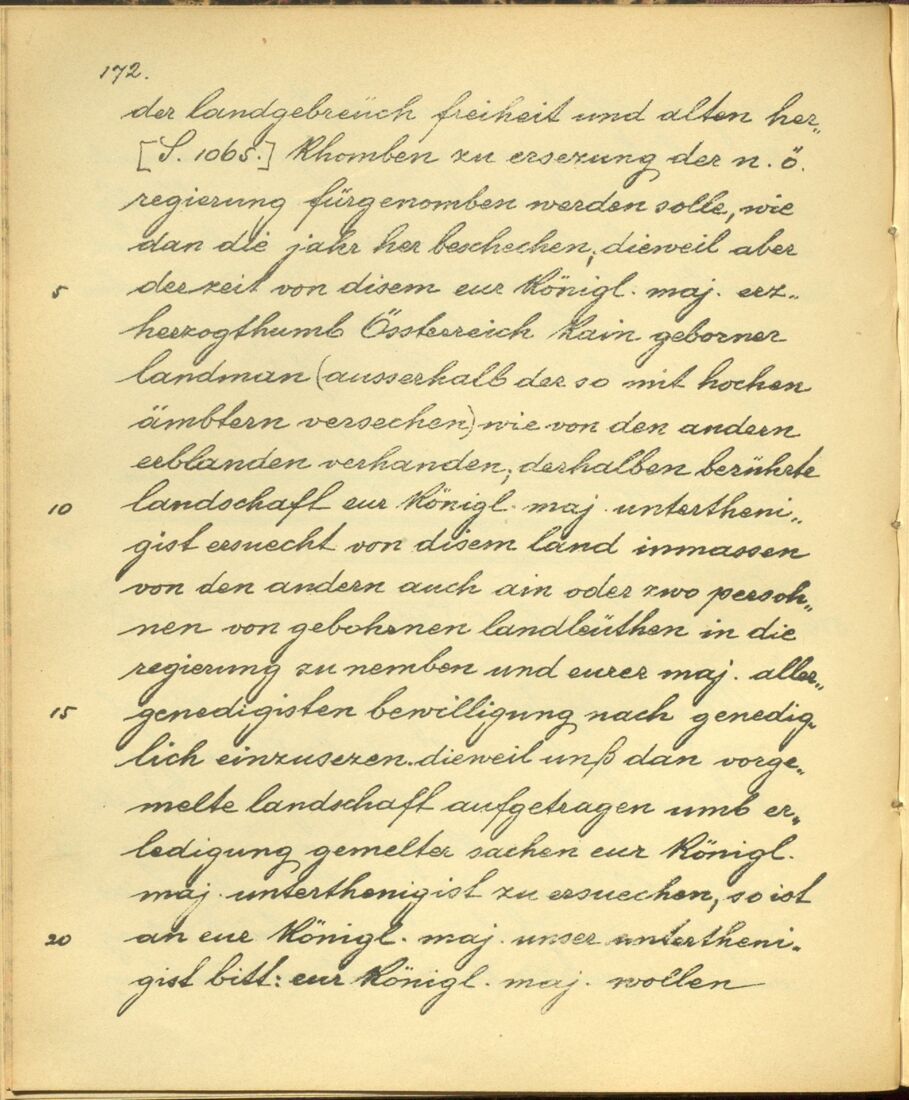 172.
der landgebreüch freiheit und alten her„
[S. 1065.] Khomben zu ersezung der n. ö.
regierung fürgenomben werden solle, wie
dan die jahr her beschechen; dieweil aber
5 der zeit von disem eur Königl. maj. erz„
herzogthumb Össterreich Kain geborner
landman (ausserhalb der so mit hochen
ämbtern versechen) wie von den andern
erblanden verhanden; derhalben berührte
10 landschaft eur Königl. maj. untertheni„
gist ersuecht von disem land inmassen
von den andern auch ain oder zwo persoh„
nen von gebohrnen landleüthen in die
regierung zu nemben und eurer maj. aller„
15 genedigisten bewilligung nach genedig„
lich einzusezen. dieweil unß dan vorge„
melte landschaft aufgetragen umb er„
ledigung gemelter sachen eur Königl.
maj. unterthenigist zu ersuechen, so ist
20 an eur Königl. maj. unser untertheni„
gist bitt: eur Königl. maj. wollen